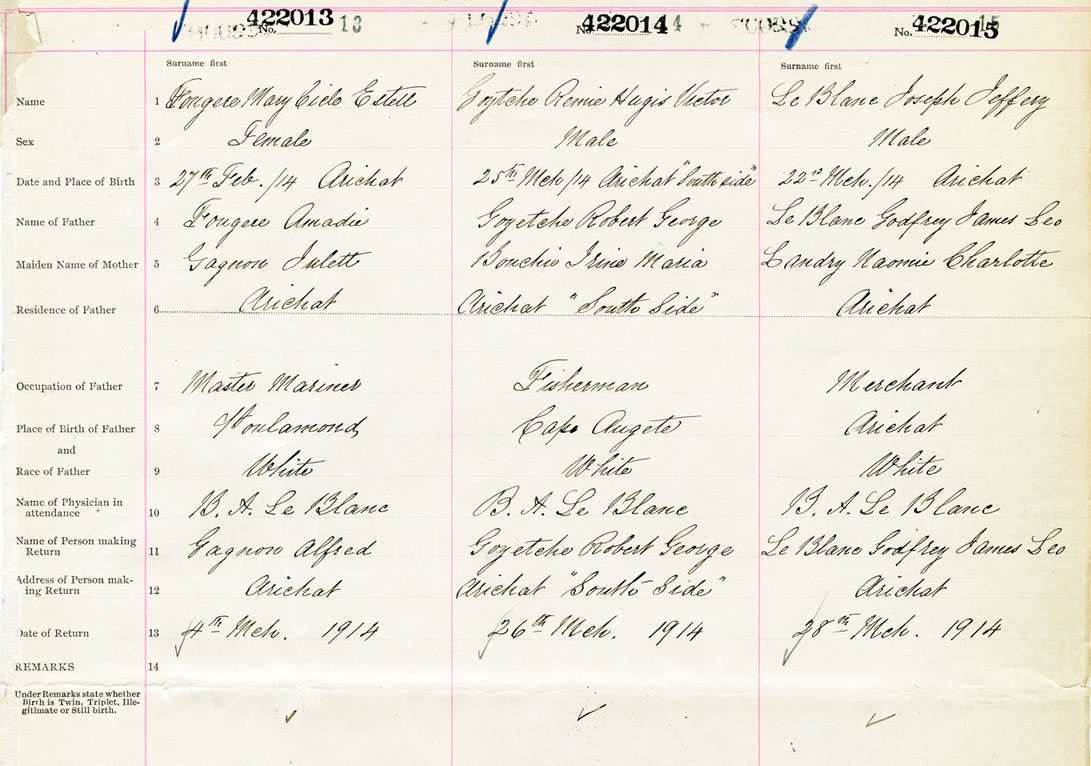 No. 422013 13 No. 422014 4 No. 422015 15
Surname first Surname first Surname first
Name 1 Fougere Mary Ciclo Estell Goytche Remie Hugis Victor Le Blanc Joseph Jeffery
Sex 2 Female Male Male
Date and Place of Birth 3 27th Feb. /14 Arichat 25th Mch /14 Arichat "South side" 22nd Mch. /14 Arichat
Name of Father 4 Fougere Amadie Goyetche Robert George Le Blanc Godfrey James Leo
Maiden Name of Mother 5 Gagnon Julett Bouchie Irine Maria Landry Naomie Charlotte
Residence of Father 6 Arichat Arichat "South Side" Arichat
Occupation of Father 7 Master Mariner Fisherman Merchant
Place of Birth of Father 8 Poulamond Cape Augete Arichat
and
Race of Father 9 White White White
Name of Physician in
attendance 10 B. A. Le Blanc B. A. Le Blanc B. A. Le Blanc
Name of Person making
Return 11 Gagnon Alfred Goyetche Robert George Le Blanc Godfrey James Leo
Address of Person mak-
ing Return 12 Arichat Arichat "South Side" Arichat
Date of Return 13 4th Mch. 1914 26th Mch. 1914 28th Mch. 1914
REMARKS 14
Under Remarks state whether
Birth is Twin, Triplet, Ille-
gitimate or Still birth.